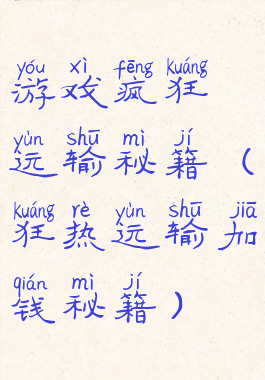 yóu xì fēng kuáng
游戏疯狂
yùn shū mì jí
运输秘籍（
kuáng rè yùn shū jiā
狂热运输加
qián mì jí
钱秘籍）